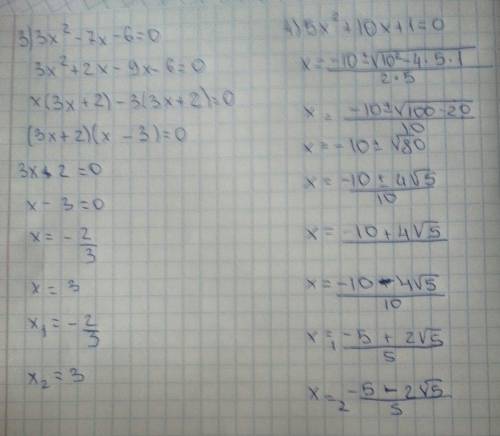 3) 3x² - 7x - 6 = 0
3x² + 2x - 9x - 6 = 0
x(3x + 2) - 3(3x + 2) = 0
(3x + 2)(x - 3) = 0
3x + 2 = 0
x - 3 = 0
x = - 2/3
x = 3
x₁ = - 2/3
x₂ = 3
4) 5x² + 10x + 1 = 0
x = -10 ± √10² - 4 · 5 · 1 / 2 · 5
x = -10 ± √100 - 20 / 10
x = -10 ± √80
x = -10 ± 4√5 / 10
x = -10 + 4√5
x = -10 - 4√5 / 10
x₁ = -5 + 2√5 / 5
x₂ = -5 - 2√5 / 5